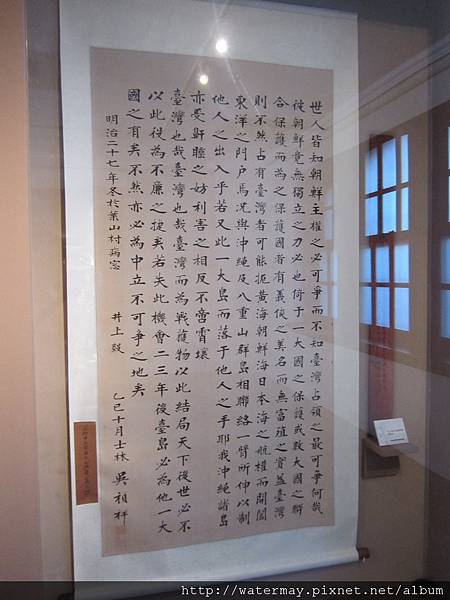 世人皆知朝鮮主權之必可爭而不知臺灣占領之最可爭何哉
彼朝鮮竟無獨立之力必也倚于一大國之保護或致大國之聯
合保護而為之保護國者有義俠之美名而無富殖之實益臺灣
則不然占有臺灣者可能扼黃海朝鮮海日本海之航權而開闔
東洋之門戶焉況與沖繩及八重山群島相聯絡一臂所伸以制
他人之出入乎若又此一大島而落于他人之手耶我沖繩諸島
亦受鼾睡之妨利害之相反不啻霄壤
臺灣也哉臺灣而為戰獲物以此結局天下後世必不
以此役為不廉之捷矣若失此機會二三年後臺島必為他一大
國之有矣不然亦必為中立不可爭之地矣
明治二十七年冬於葉山村病窓
井上毅
乙巳十月士林 吳祖祥
http://watermay.pixnet.net/album